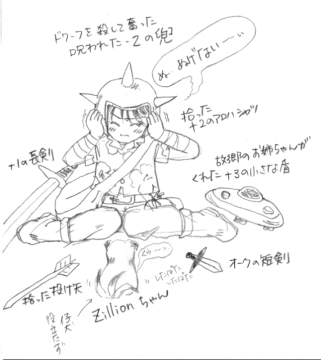 ドワーフを殺して奪った
呪われた-2の兜
ぬ ぬげない…
拾った
+2のアロハシャツ
+1の長剣
故郷のお姉ちゃんが
くれた+3の小さな盾
オークの短剣
拾った投げ矢
仔犬
役立たず
Zillionちゃん